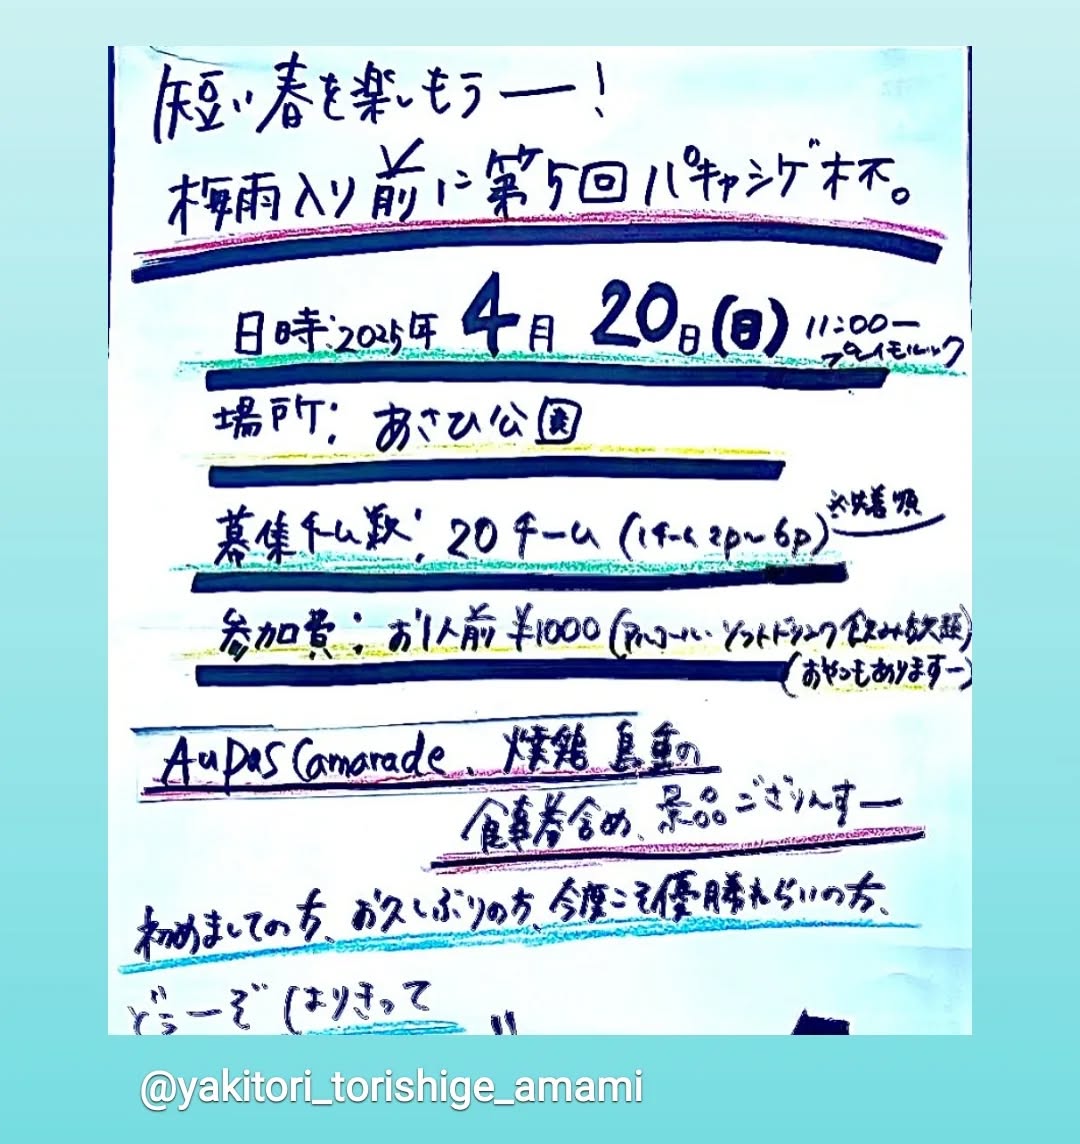 短い春を楽しもうー!
梅雨入り前に第5回パキャシゲ杯。
日時:2025年 4月 20日(日) 11:00ー
プレイモルック
場所: あさひ公園
※先着順
募集チーム数: 20チーム (1チーム2p〜6p)
参加費: お1人前 ¥1000 (アルコール・ソフトドリンク飲み放題)
(おやつもありますー)
Au Pas Camarade、焼鶏 鳥重の
食事券含め、景品ござりんすー
初めましての方、お久しぶりの方、今度こそ優勝ねらいの方、
どぅーぞ はりきって
@yakitori_torishige_amami